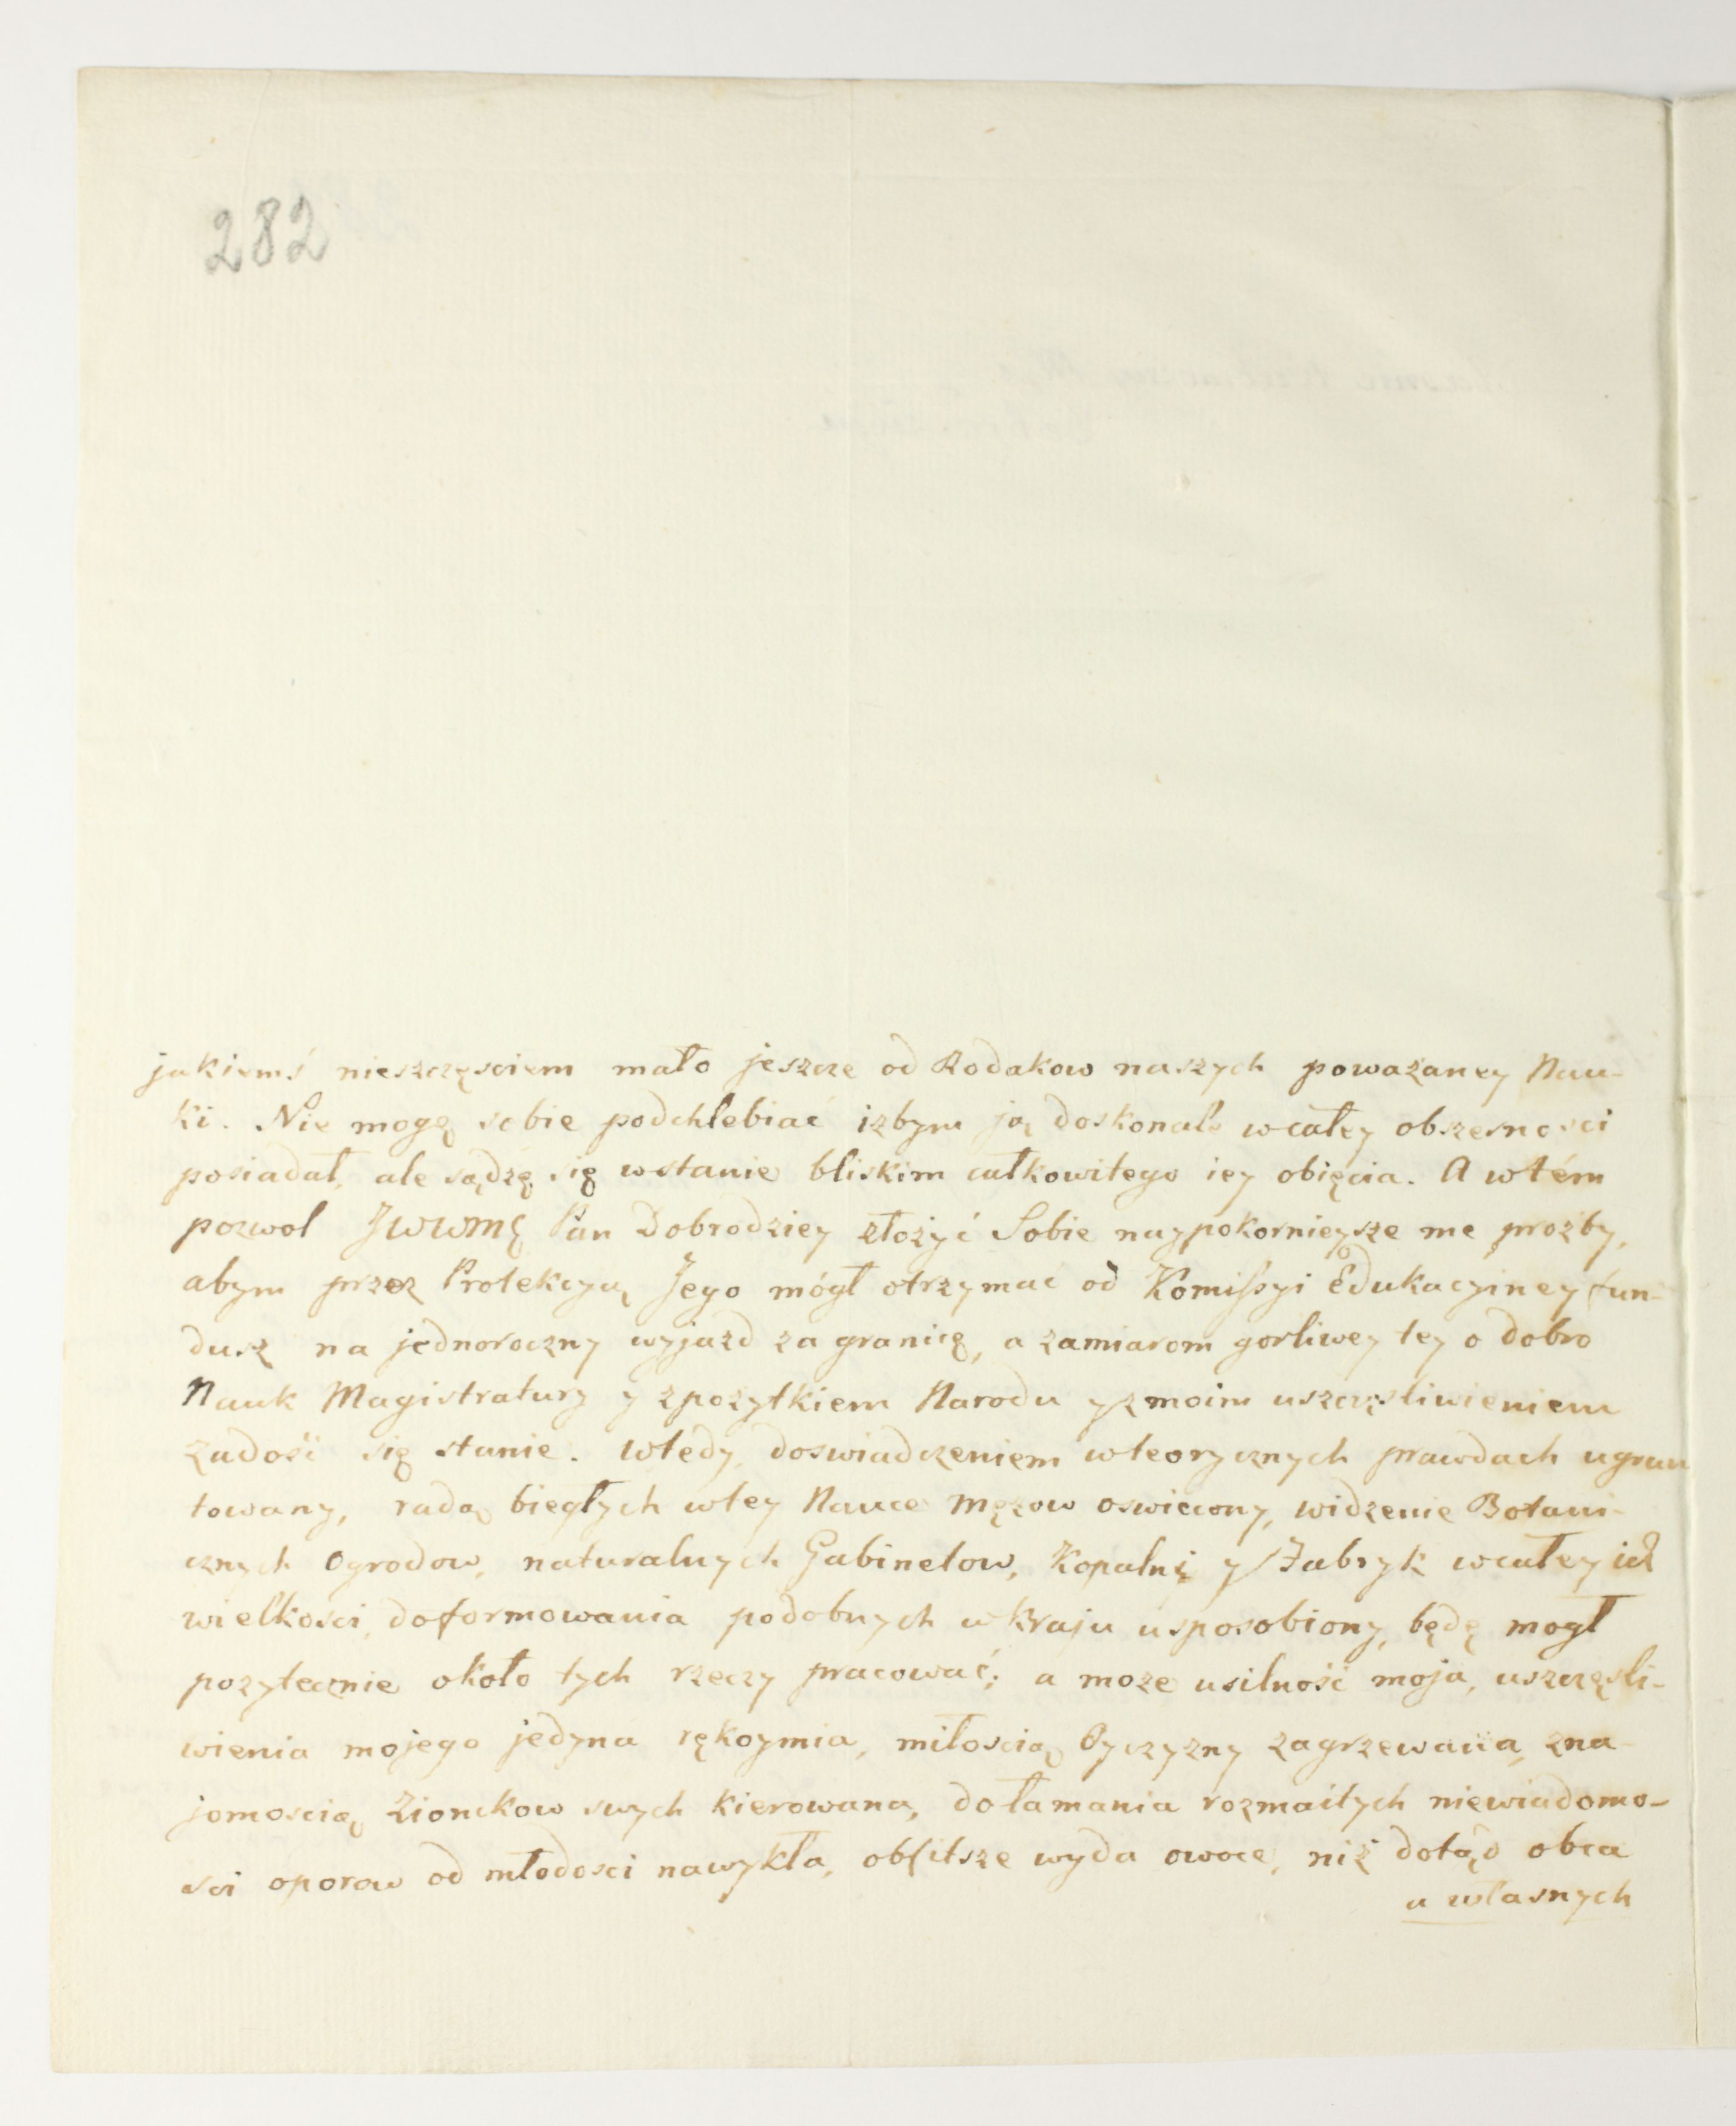 282
jakiemś nieszczęsciem mało jeszcze od Rodakow naszych poważaney Nau-
ki. Nie mogę sobie podchlebiać iżbym ją doskonale wcałey obszernosci
posiadał, ale sądzę się wstanie bliskim całkowitego iey obięcia. A wtém
pozwol JWWMĘ Pan Dobrodziey złożyć Sobie naypokornieysze me prożby,
abym przez Protekcyą Jego mógł otrzymać od Komissyi Edukacyiney fun-
dusz na jednoroczny wyjazd za granicę, a zamiarom gorliwey tey o dobro
Nauk Magistratury y zpożytkiem Narodu y z moim uszczęsliwieniem
zadość się stanie. Wtedy doswiadczeniem wteorycznych prawdach ugrun
towany, radą biegłych wtey Nauce Mężow oswiecony, widzenie Botani-
cznych Ogrodow, naturalnych Gabinetow, Kopalnię y Fabryk wcałey ich
wielkosci, doformowania podobnych w Kraju usposobiony, będę mogł
pożytecznie około tych rzeczy pracować; a może usilność moja, uszczęsli-
wienia mojego jedyna rękoymia, miłoscią Oyczyzny zagrzewana, zna-
jomoscią Ziomkow swych kierowana, dołamania rozmaitych niewiadomo-
sci oporow od młodosci nawykła, obfitsze wyda owoce, niż dotąd obca
a własnych